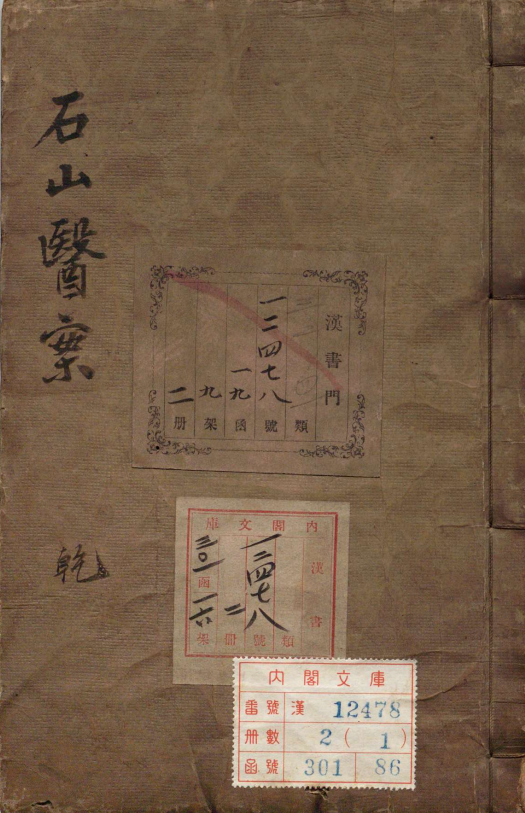 石山醫案
乾
漢書門
類
一二四七八號
一九函
九架
二册
内閣文庫
漢書
類
一二四七八號
二冊
三〇一函
一六架
内閣文庫
番號 漢 12478
册數 2 (1)
函號 301 86